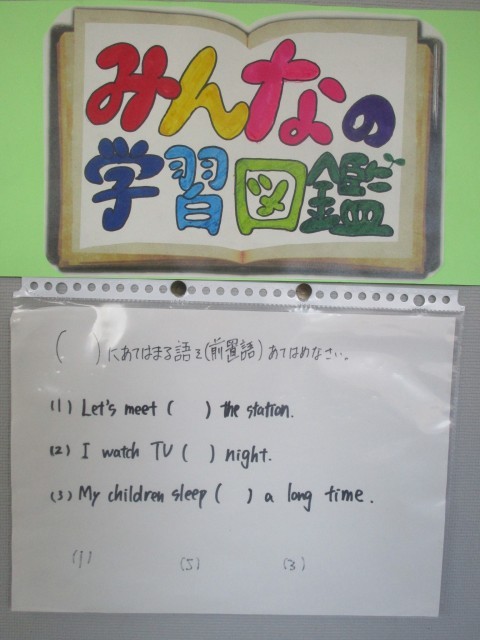 みんなの
学習図鑑
( )にあてはまる語を(前置詞)あてはめなさい。
(1) Let's meet ( ) the station.
(2) I watch TV ( ) night.
(3) My children sleep ( ) a long time.
(1) (5) (3)